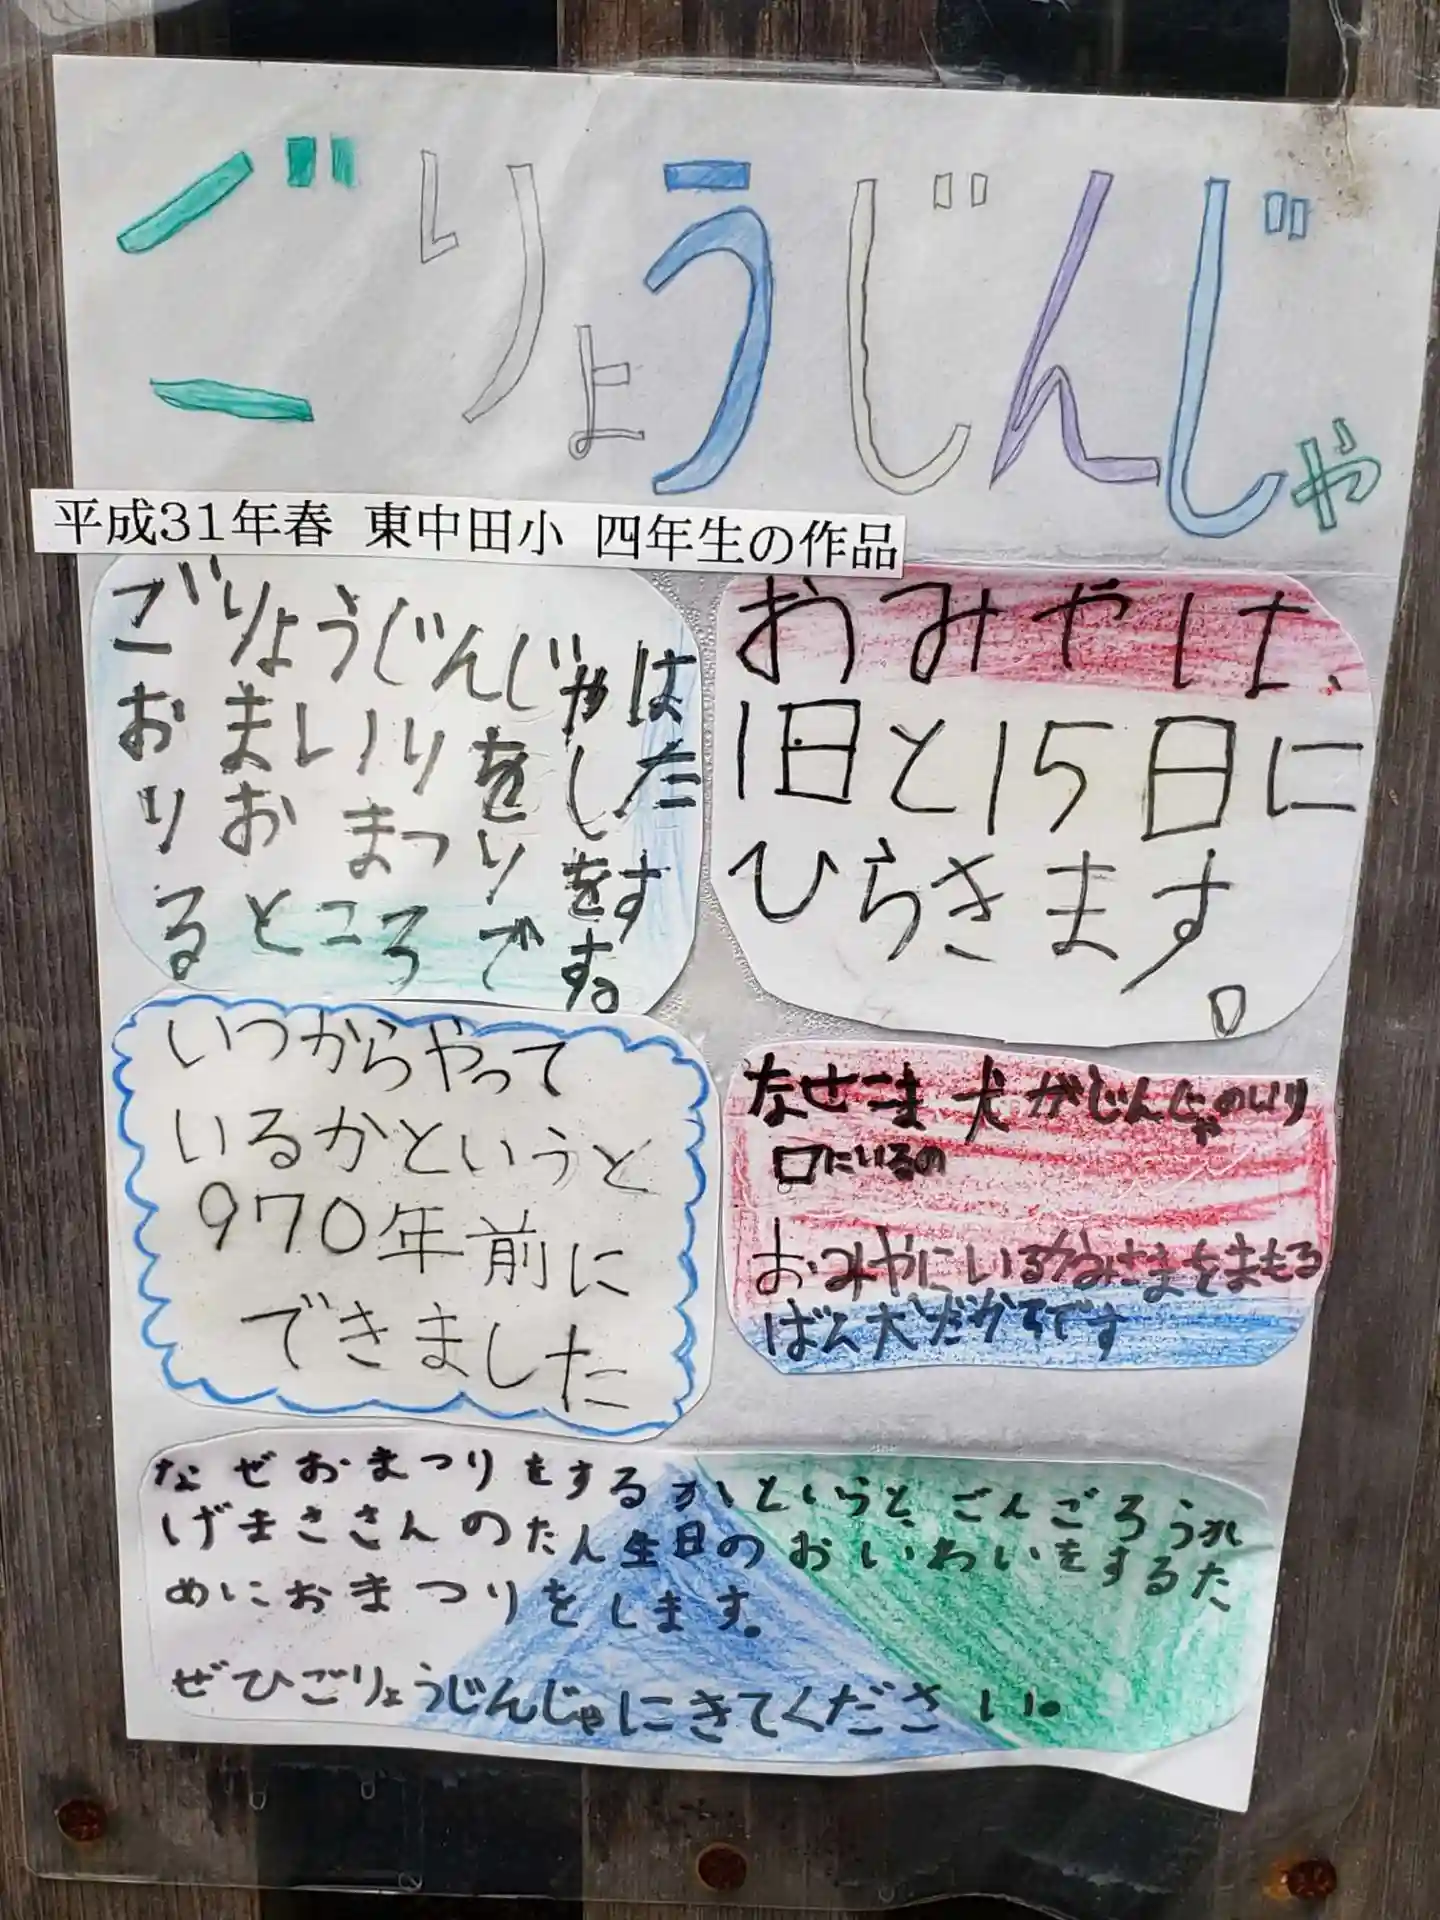 ごりょうじんじゃ
平成31年春 東中田小 四年生の作品
ごりょうじんじゃは
おまいりをした
りおまつりをす
るところです。
おみやは、
1日と15日に
ひらきます。
いつからやって
いるかというと
970年前に
できました
なせこま犬がじんじゃのいり
口にいるの
おみやにいるかみさまをまもる
ばん犬だからです
なぜおまつりをするかというと、ごんごろうか
げまささんのたん生日のおいわいをするた
めにおまつりをします。
ぜひごりょうじんじゃにきてください。